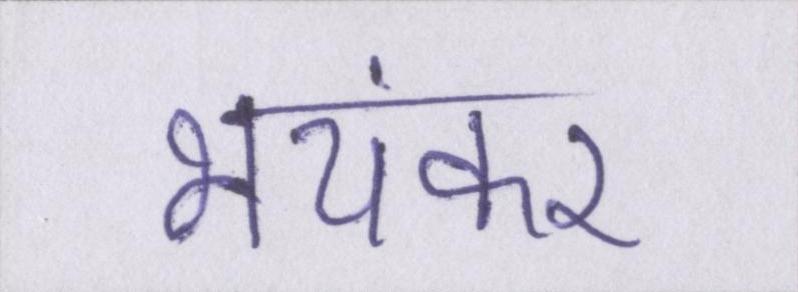 भयंकर